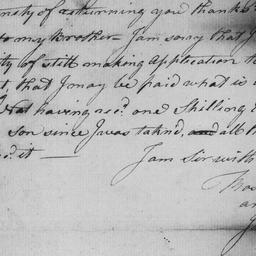 nity of returning you thanks
to my Brother — I am sorry that I
ity of still making Application to
t, that I may be paid what is
Not having recd. one Shilling
son since I was takn'd, and all th
d. it —
I am Sir with
Your
an